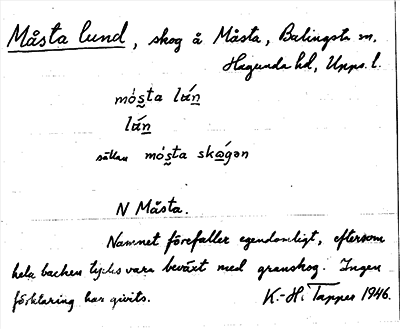 Måsta lund, skog å Måsta, Balingsta sn.
Hagunda hd, Upps. l.
mós̰ta lán̲
lán̲
sällan mós̰ta sko̲gən
N Måsta.
Namnet förefaller egendomligt, eftersom
hela backen tycks vara beväxt med granskog. Ingen
förklaring har givits. K.-H. Tapper 1946.